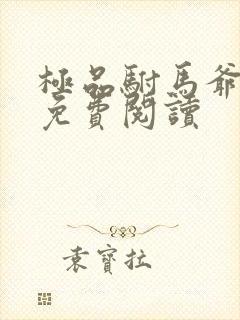 極品駙馬爺
免費閱讀
袁寶拉